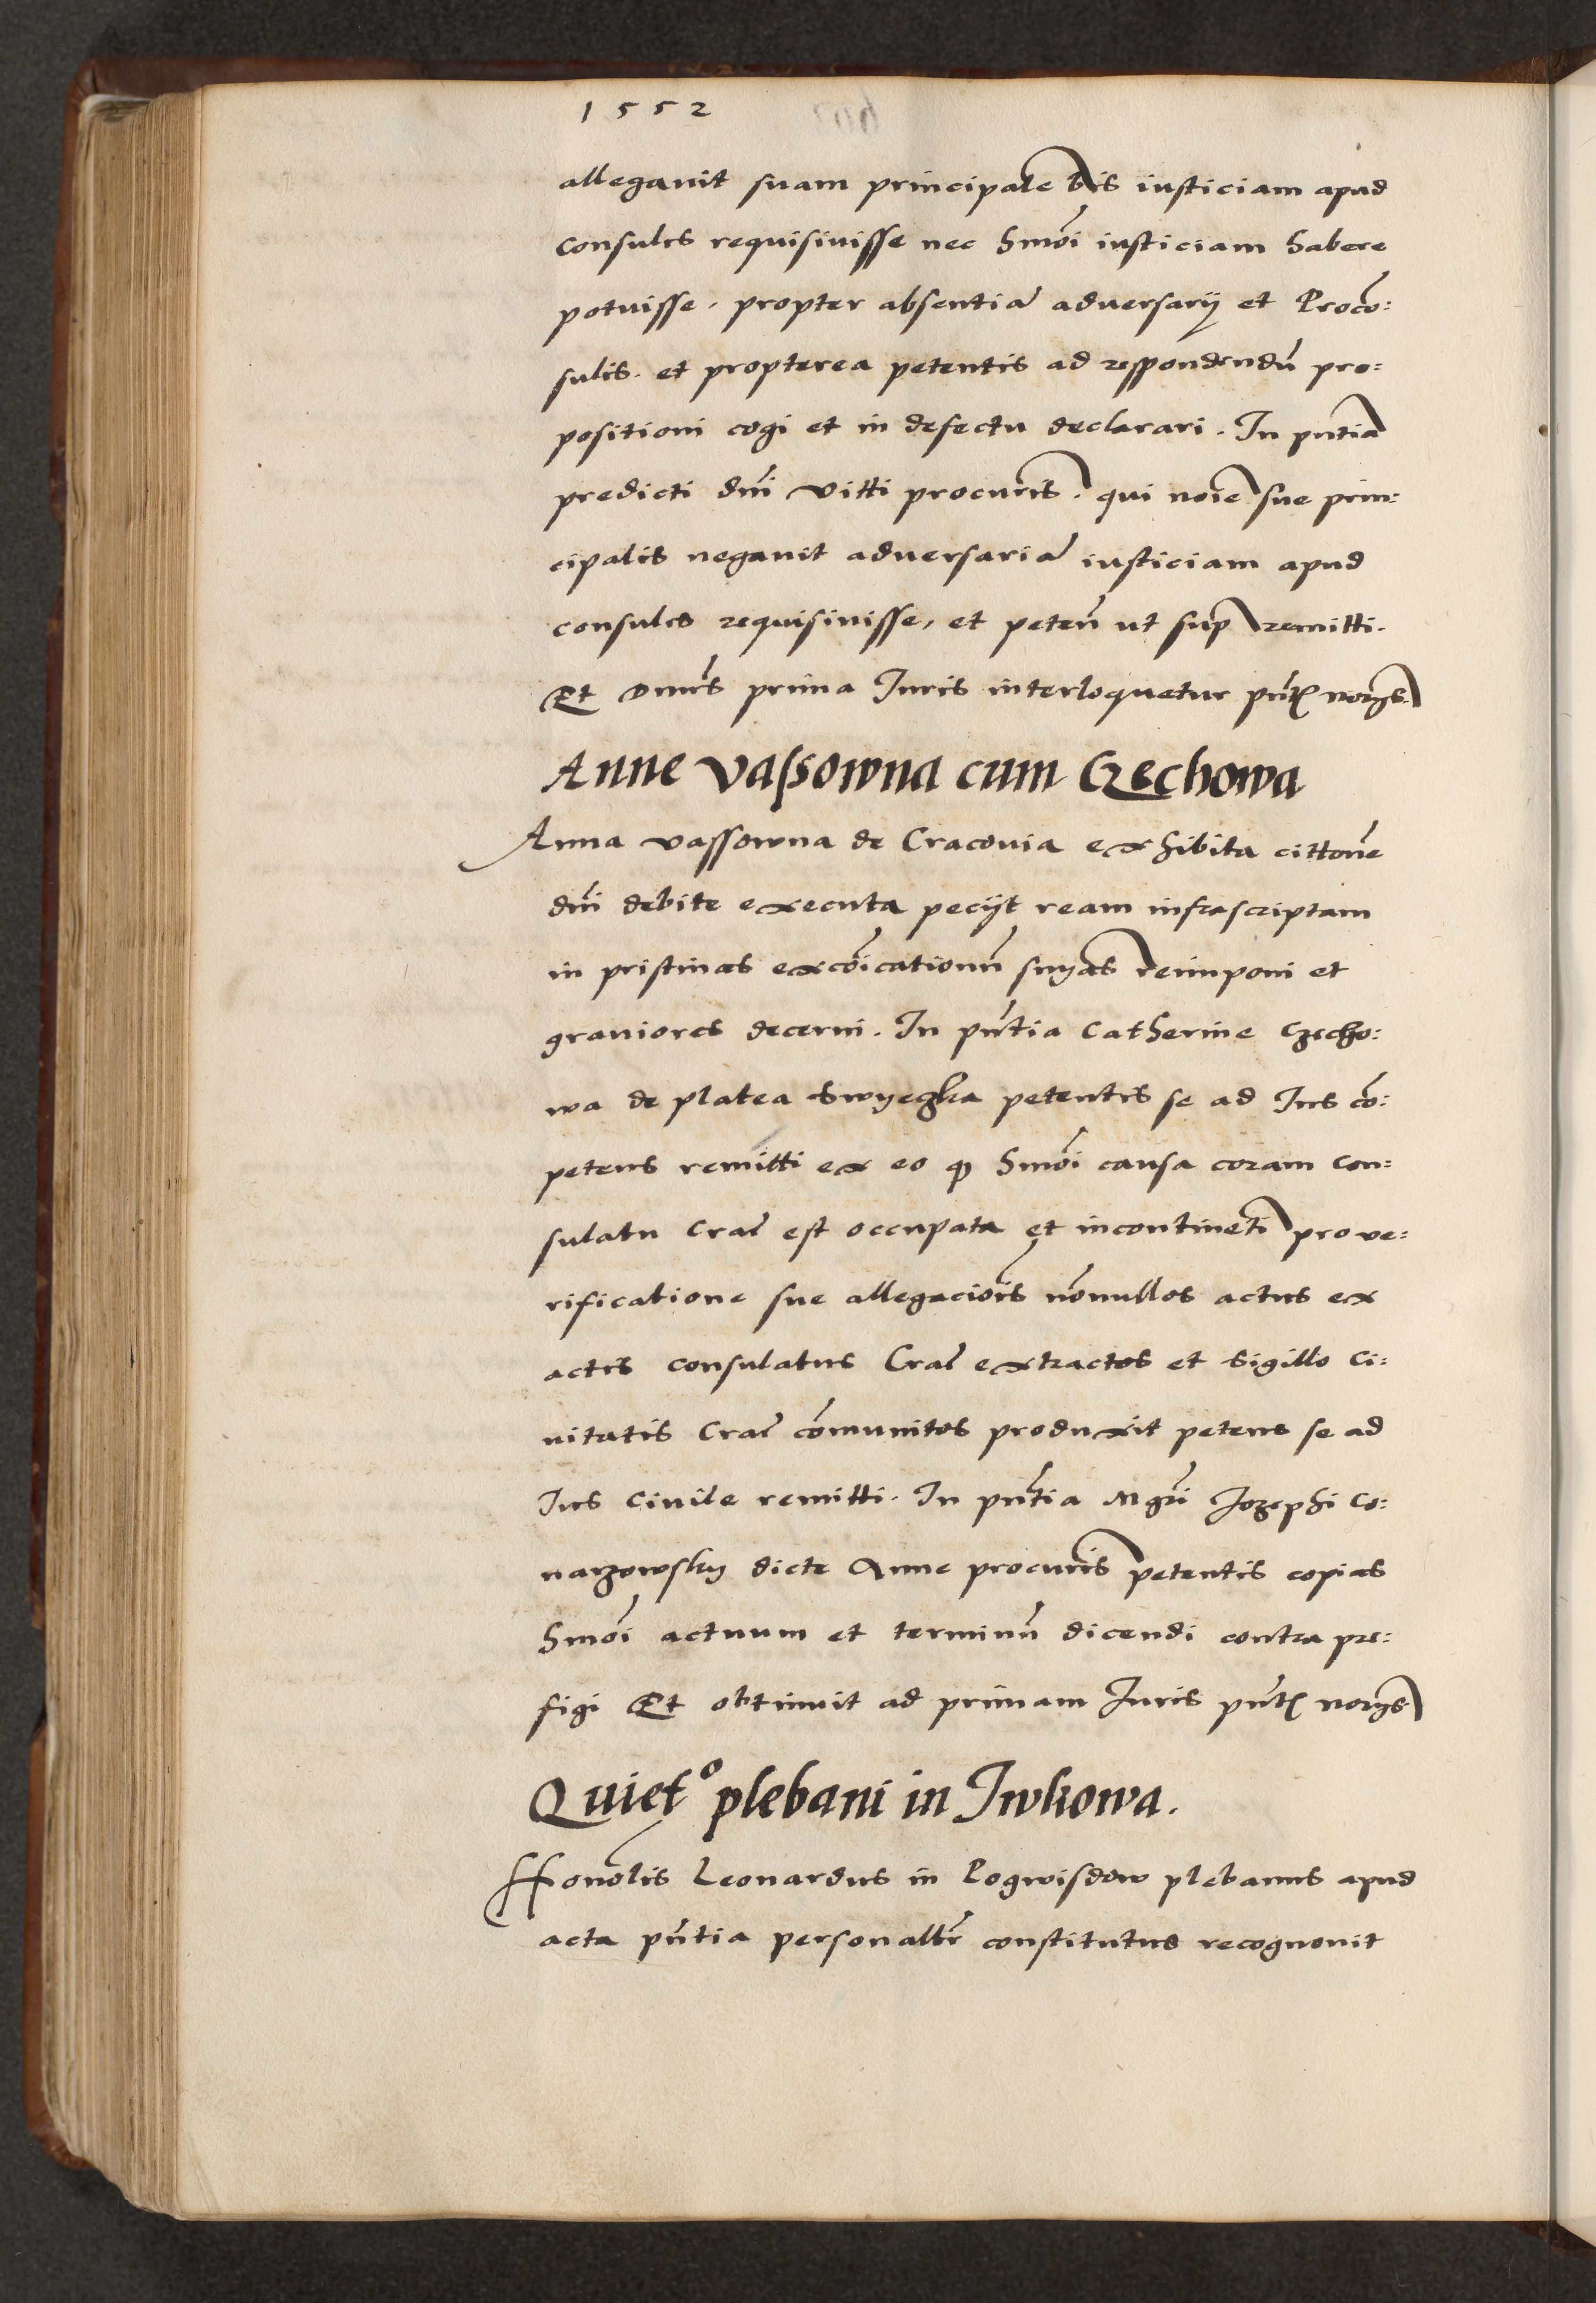 1552
allegavit suam principale bis iusticiam apud
consules requisivisse nec hmõi iusticiam habere
potuisse, propter absentiã adversarij et Procõ:
sulis. et propterea petentis ad respondendũ pro:
positioni cogi et in defectu declarari. In pñtia
predicti dñi Vitti procuris. qui noie sue prin:
cipalis negavit adversariã iusticiam apud
consules requisivisse, et peteñ ut sup remitti.
Et Dnus prima Iuris interloquetur pñt norijs
Anne Vassowna cum Czechowa
Anna Vassowna de Cracovia exhibita cittone
dñi debite executa pecijt ream infrascriptam
in pristinas excõicationũ suyas reimponi et
graviores decerni. In pñtia Catherine Czecho:
wa de platea Swyeczka petentis se ad Ius cõ:
petens remitti ex eo q hmõi causa coram con:
sulatu Crac est occupata et incontineti pro ve:
rificatione sue allegaciois nõnullos actus ex
actis consulatus Crac extractos et sigillo ci:
vitatis Crac cõmunitos produxit petens se ad
Ius civile remitti. In pñtia Mgri Jozephi Co:
narzowsky dicte Anne procuris petentis copias
hmõi actuum et terminũ dicendi contra pre:
figi Et obtinuit ad primam Iuris pñt norijs
Quietº plebani in Iwkowa.
Honolis Leonardus in Pogwisdow plebanus apud
acta pñtia personalr constitutus recognovit